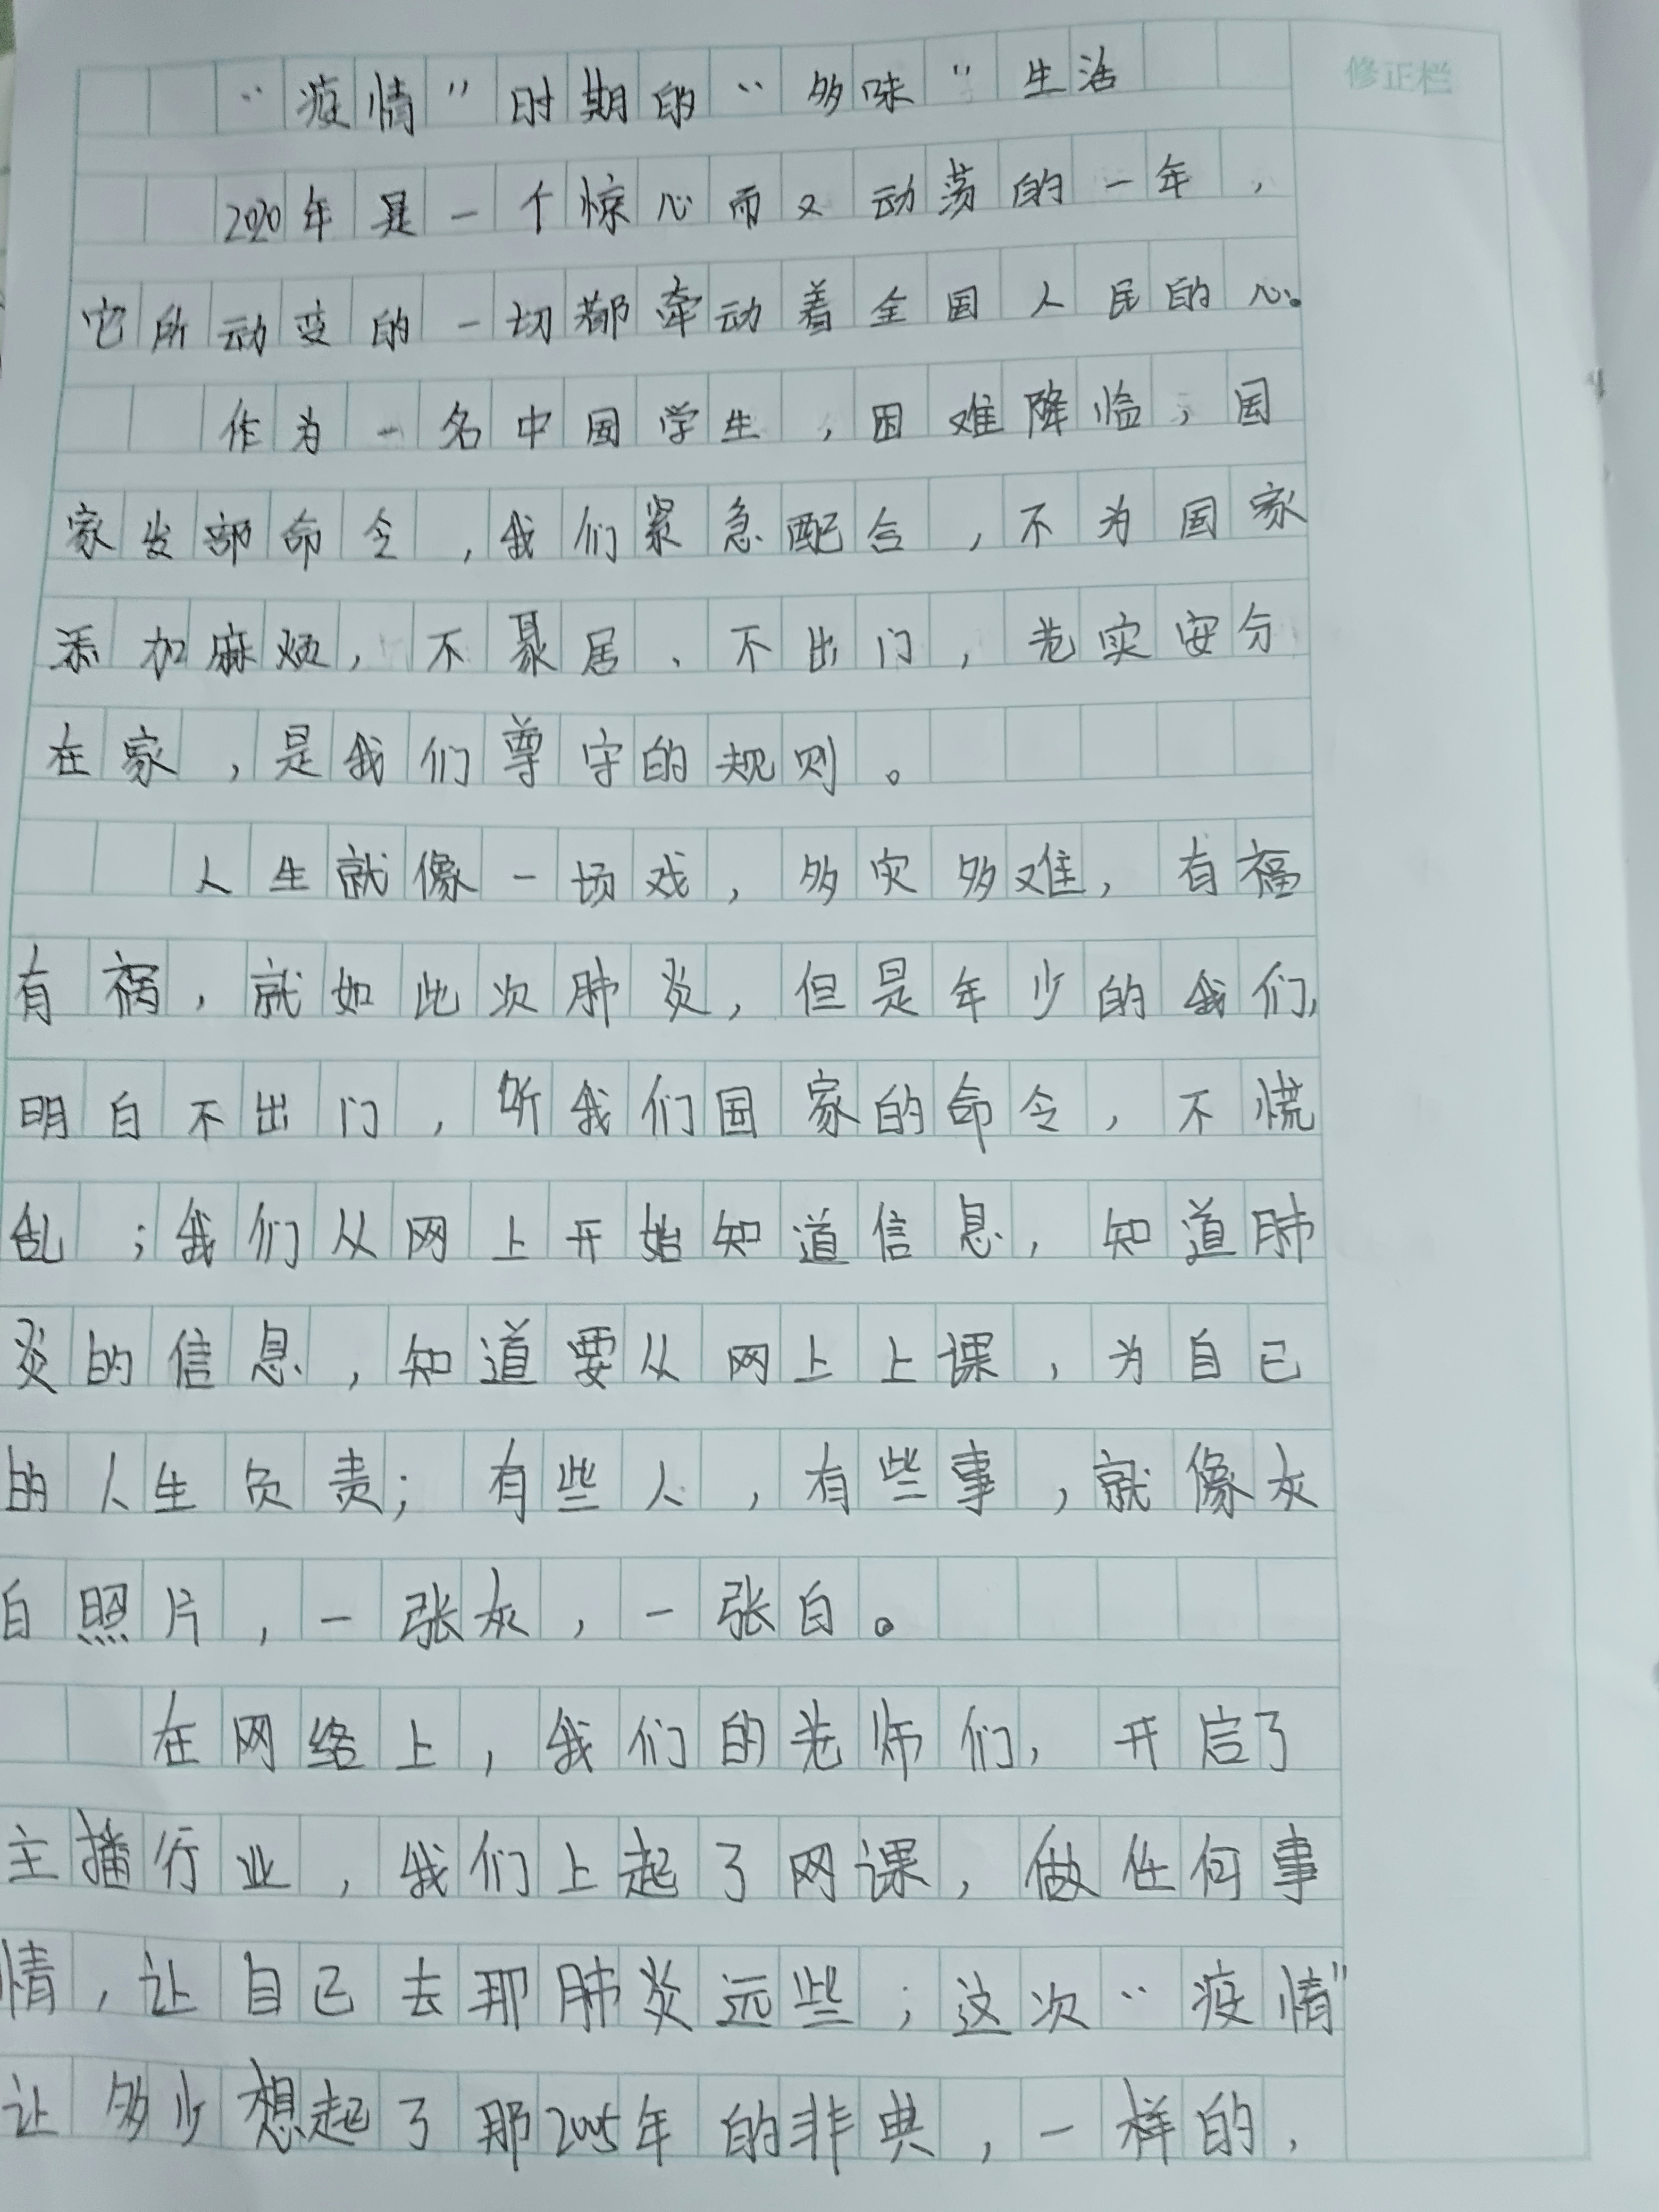 “疫情”时期的“多味”生活
修正栏
2020年是一个惊心而又动荡的一年，
它所动变的一切都牵动着全国人民的心。
作为一名中国学生，困难降临，国
家发部命令，我们紧急配合，不为国家
添加麻烦，不聚居、不出门，老实安分
在家，是我们尊守的规则。
人生就像一场戏，多灾多难，有福
有祸，就如此次肺炎，但是年少的我们，
明白不出门，听我们国家的命令，不慌
乱；我们从网上开始知道信息，知道肺
炎的信息，知道要从网上上课，为自己
的人生负责；有些人，有些事，就像灰
白照片，一张灰，一张白。
在网络上，我们的老师们，开启了
主播行业，我们上起了网课，做任何事
情，让自己去那肺炎远些；这次“疫情”
让多少想起了那2005年的非典，一样的，